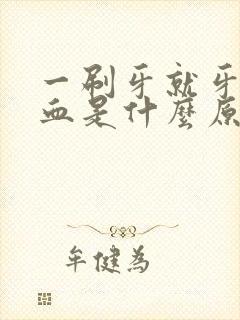 一刷牙就牙
血是什麼原
牟健为